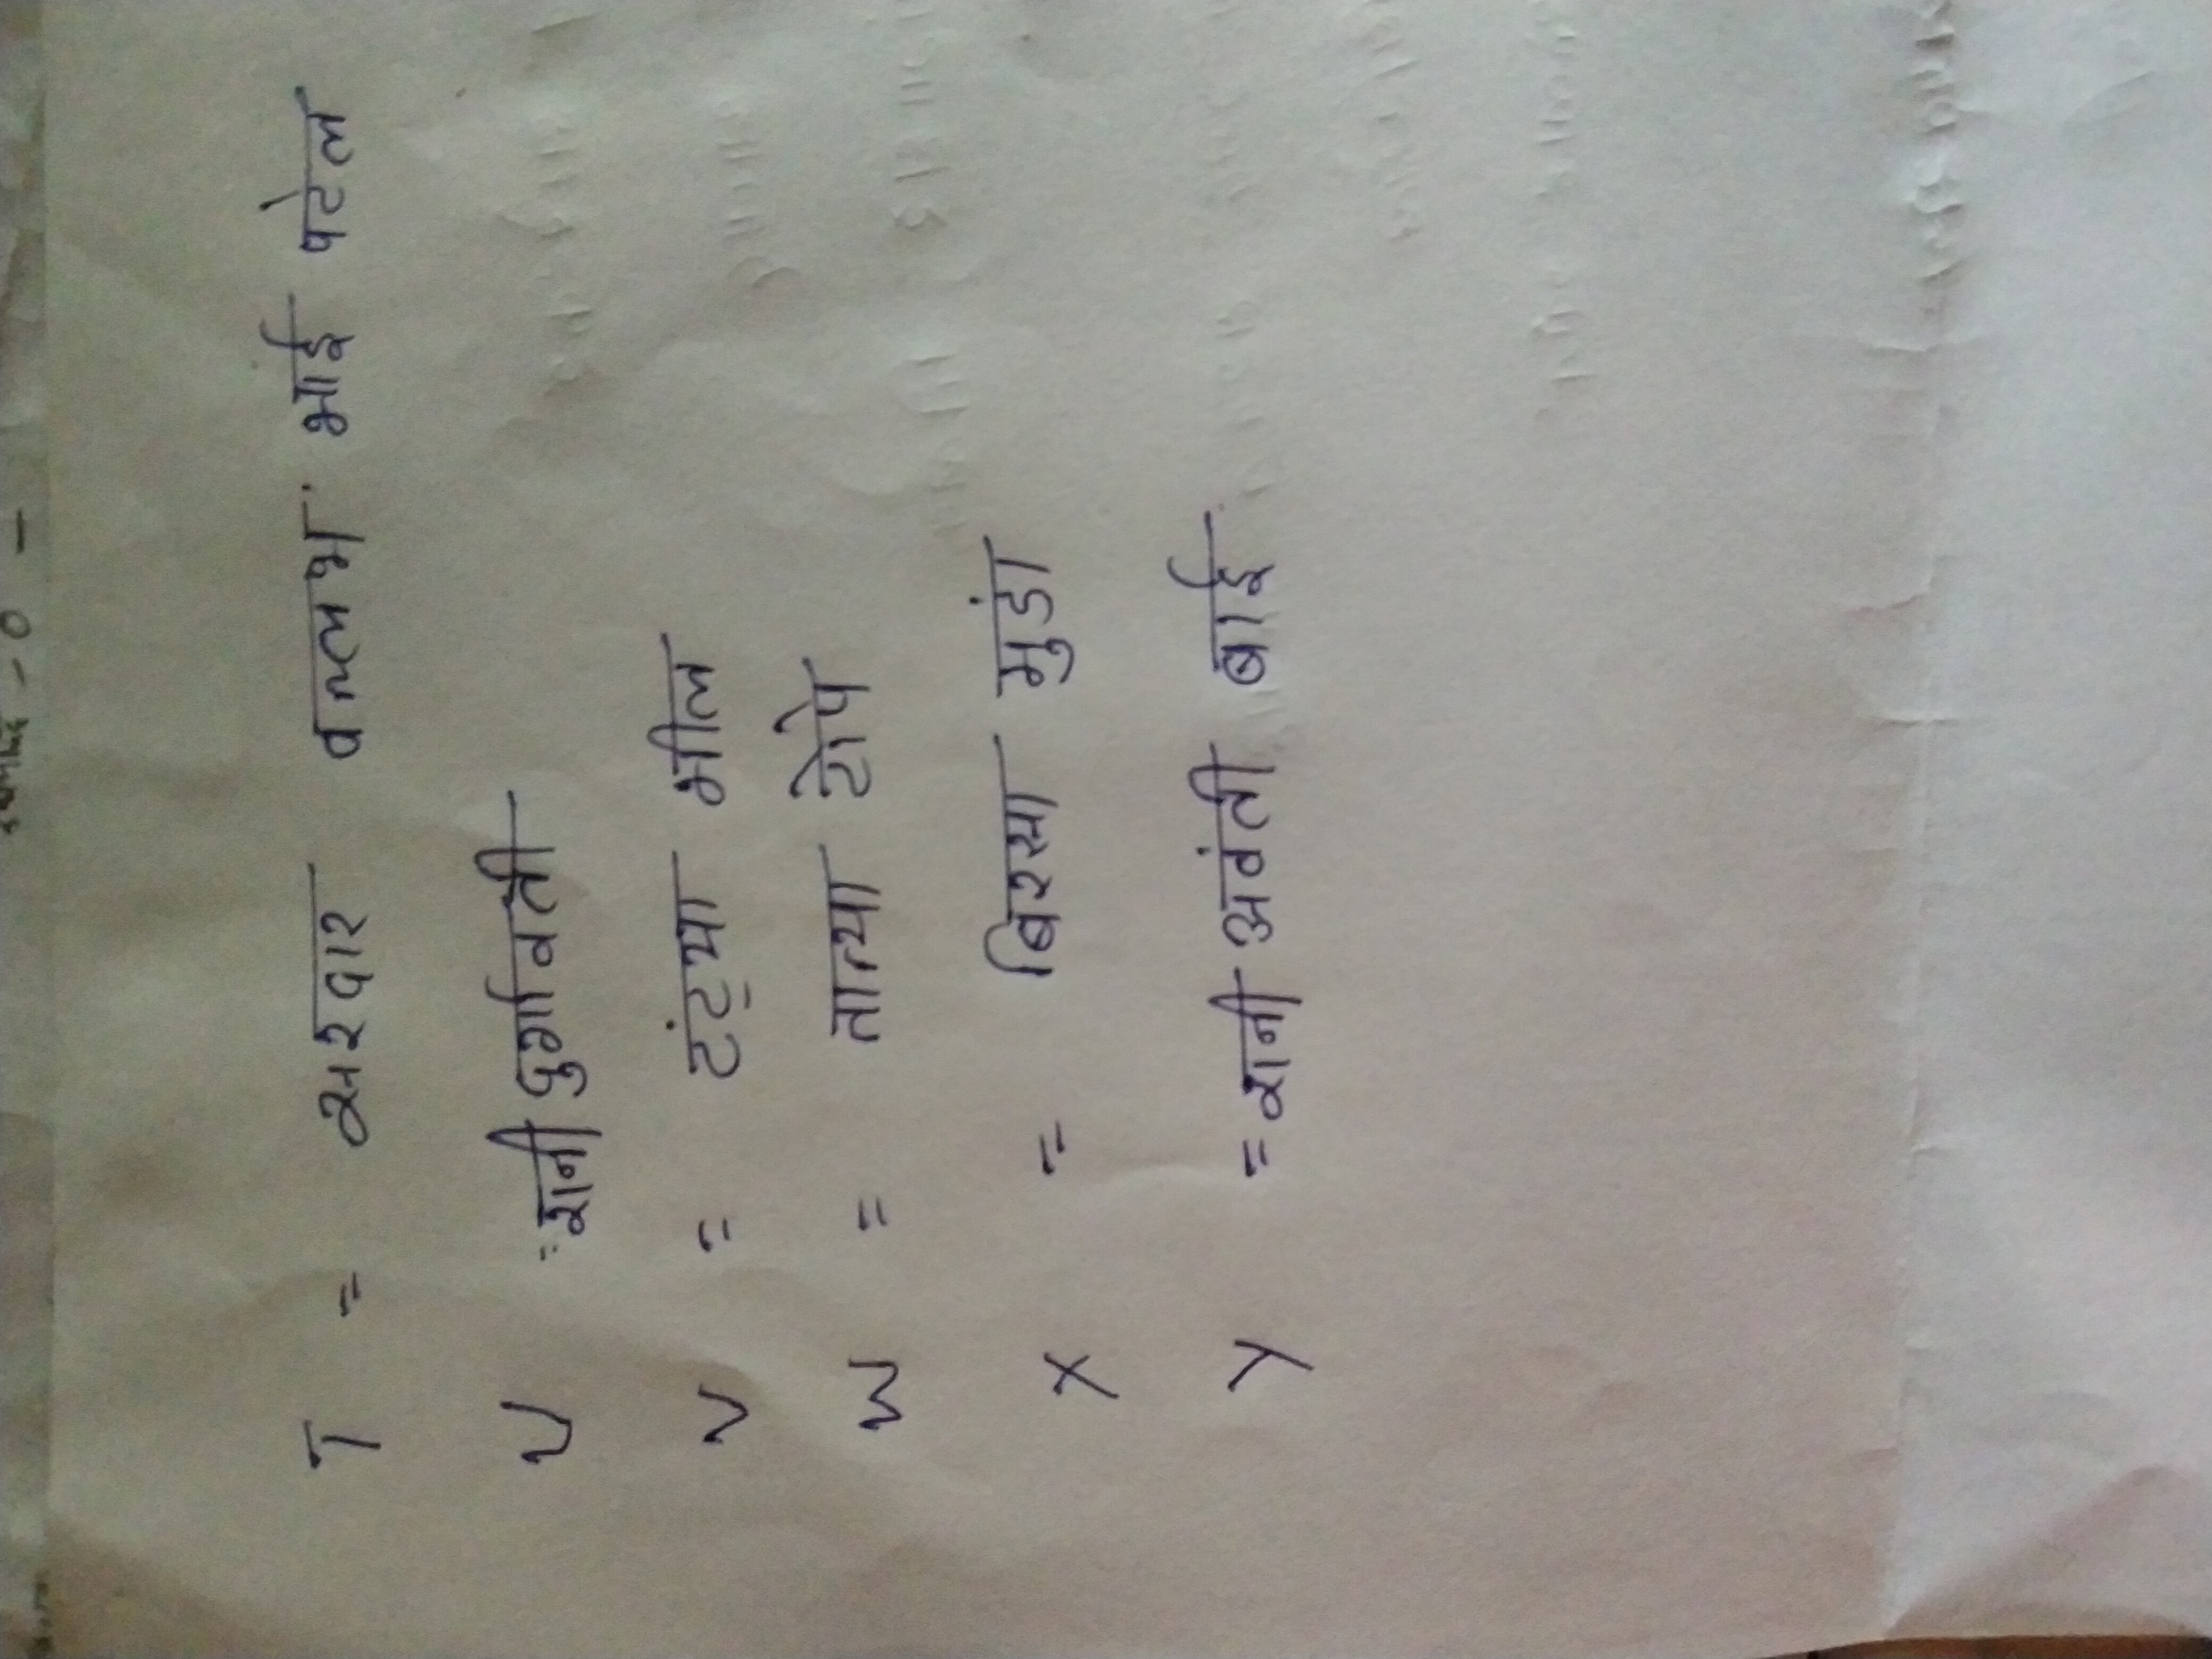 T = सरदार वल्लभ भाई पटेल
U = रानी दुर्गावती
V = टंट्या भील
W = तात्या टोपे
X = बिरसा मुंडा
Y = रानी अवंती बाई